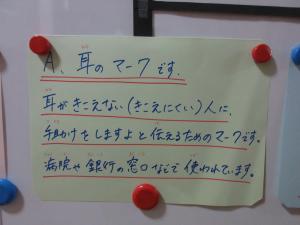 A、耳のマークです。
耳がきこえない(きこえにくい)人に、
手助けをしますよと伝えるためのマークです。
病院や銀行の窓口などで使われています。